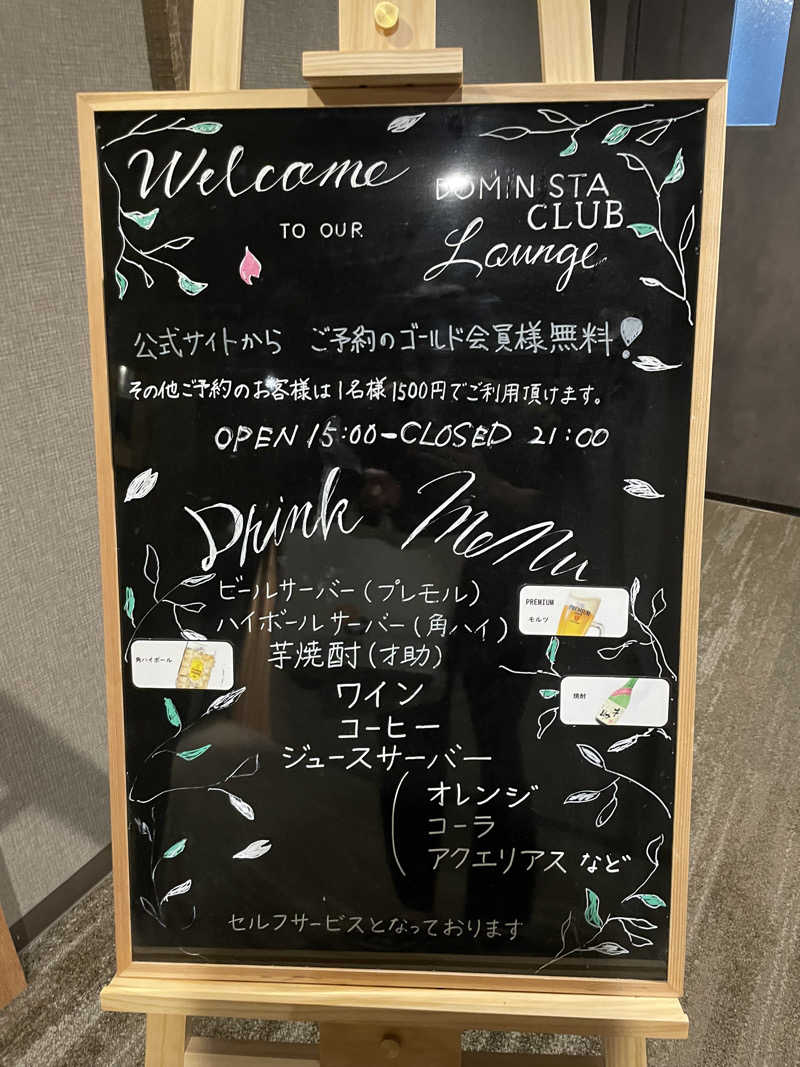 Welcome
TO OUR
DOMIN STA
CLUB
Lounge
公式サイトから ご予約のゴールド会員様無料!
その他ご予約のお客様は1名様1500円でご利用頂けます。
OPEN 15:00-CLOSED 21:00
Drink Menu
ビールサーバー(プレモル)
PREMIUM
モルツ
ハイボールサーバー(角ハイ)
角ハイボール
芋焼酎(才助)
焼酎
ワイン
コーヒー
ジュースサーバー
オレンジ
コーラ
アクエリアス など
セルフサービスとなっております